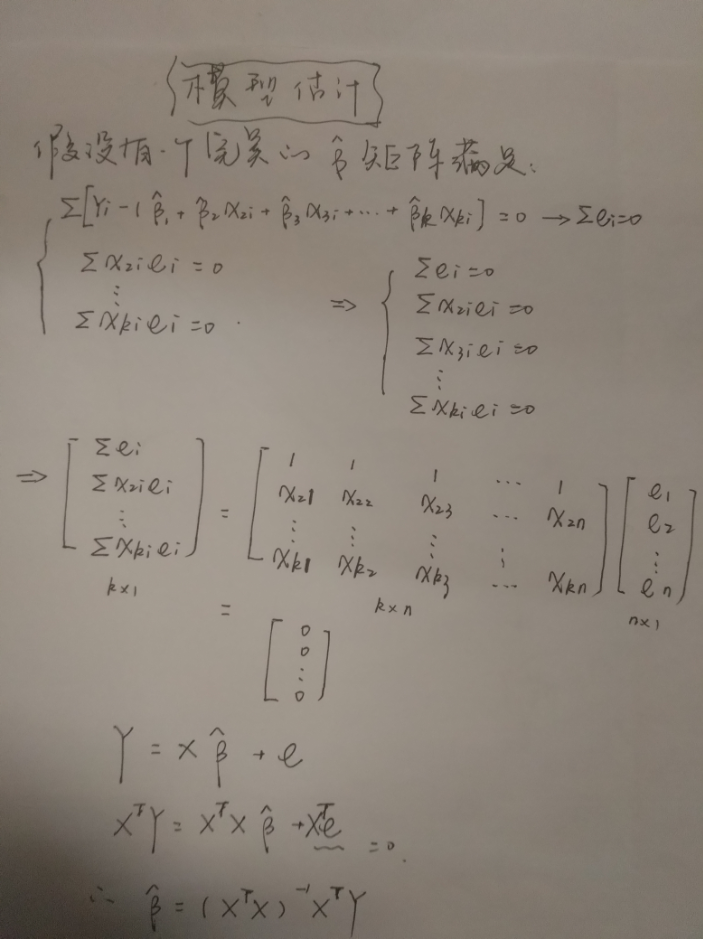 模型估计
假设有一个完美的 β̂ 矩阵满足:
Σ[Yi-(β̂1+β̂2X2i+β̂3X3i+⋯+β̂kXki]=0 → Σei=0
ΣX2iei=0
⋮
ΣXkiei=0.
⇒ { Σei=0
ΣX2iei=0
ΣX3iei=0
⋮
ΣXkiei=0
⇒ [Σei ΣX2iei ⋮ ΣXkiei] = [1 1 1 ⋯ 1
X21 X22 X23 ⋯ X2n
⋮ ⋮ ⋮ ⋮
Xk1 Xk2 Xk3 ⋯ Xkn] [e1 e2 ⋮ en]
k×1 k×n n×1
= [0 0 ⋮ 0]
Y = X β̂ + e
XᵀY = XᵀX β̂ + Xᵀe =0.
∴ β̂ = (XᵀX)⁻¹XᵀY